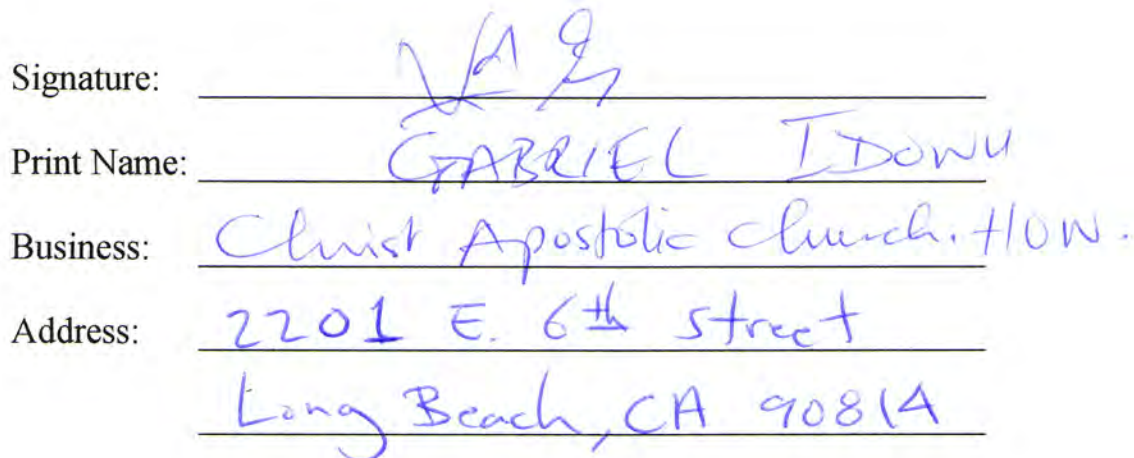 Signature:
Print Name: GABRIEL IDOWU
Business: Christ Apostolic Church. HOW.
Address: 2201 E. 6th street
Long Beach, CA 90814